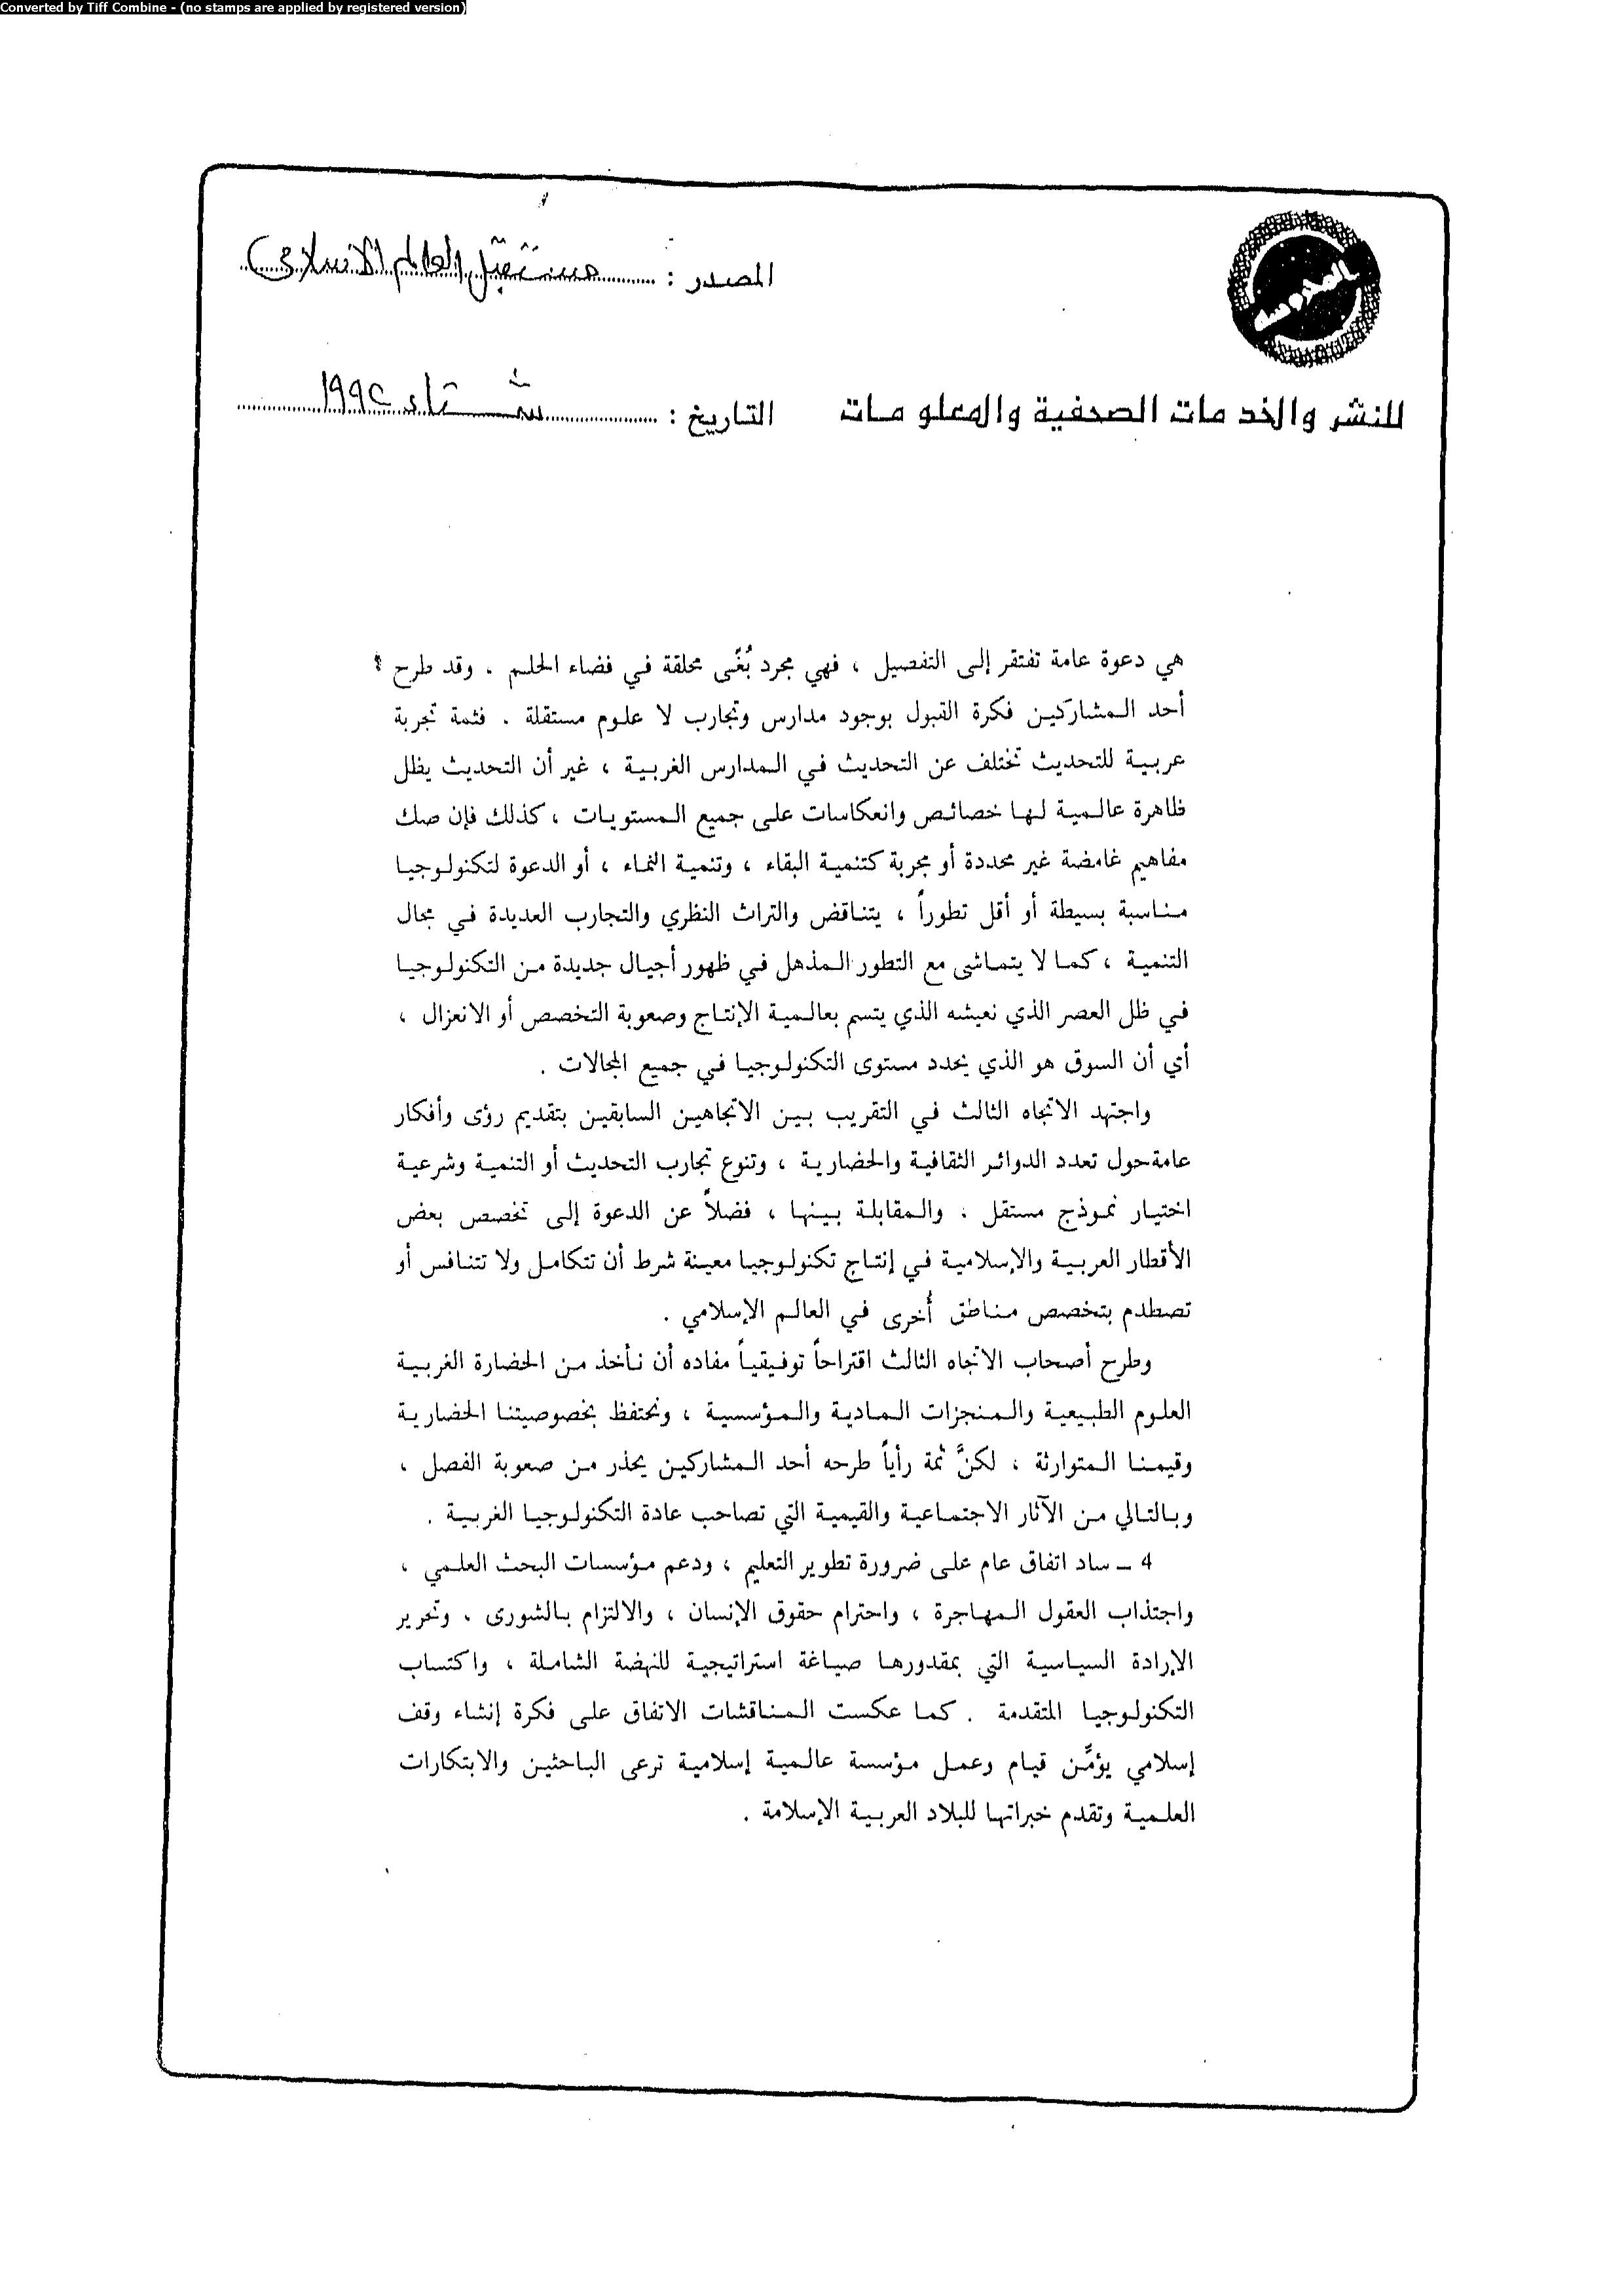 Converted by Tiff Combine - (no stamps are applied by registered version)
المحروسة
المصدر : مستقبل العالم الاسلامى
للنشر والخدمات الصحفية والمعلومات
التاريخ : شتاء ١٩٩٢
هي دعوة عامة تفتقر إلى التفصيل ، فهي مجرد بُغًى محلقة في فضاء الحلم . وقد طرح
أحد المشاركين فكرة القبول بوجود مدارس وتجارب لا علوم مستقلة . فثمة تجربة
عربية للتحديث تختلف عن التحديث في المدارس الغربية ، غير أن التحديث يظل
ظاهرة عالمية لها خصائص وانعكاسات على جميع المستويات ، كذلك فإن صك
مفاهيم غامضة غير محددة أو مجربة كتنمية البقاء ، وتنمية النماء ، أو الدعوة لتكنولوجيا
مناسبة بسيطة أو أقل تطوراً ، يتناقض والتراث النظري والتجارب العديدة في مجال
التنمية ، كما لا يتماشى مع التطور المذهل في ظهور أجيال جديدة من التكنولوجيا
في ظل العصر الذي نعيشه الذي يتسم بعالمية الإنتاج وصعوبة التخصص أو الانعزال ،
أي أن السوق هو الذي يحدد مستوى التكنولوجيا في جميع المجالات .
واجتهد الاتجاه الثالث في التقريب بين الاتجاهين السابقين بتقديم رؤى وأفكار
عامة حول تعدد الدوائر الثقافية والحضارية ، وتنوع تجارب التحديث أو التنمية وشرعية
اختيار نموذج مستقل ، والمقابلة بينها ، فضلاً عن الدعوة إلى تخصص بعض
الأقطار العربية والإسلامية في إنتاج تكنولوجيا معينة شرط أن تتكامل ولا تتنافس أو
تصطدم بتخصص مناطق أُخرى في العالم الإسلامي .
وطرح أصحاب الاتجاه الثالث اقتراحاً توفيقياً مفاده أن نأخذ من الحضارة الغربية
العلوم الطبيعية والمنجزات المادية والمؤسسية ، ونحتفظ بخصوصيتنا الحضارية
وقيمنا المتوارثة ، لكنَّ ثمة رأياً طرحه أحد المشاركين يحذر من صعوبة الفصل ،
وبالتالي من الآثار الاجتماعية والقيمية التي تصاحب عادة التكنولوجيا الغربية .
4 ــ ساد اتفاق عام على ضرورة تطوير التعليم ، ودعم مؤسسات البحث العلمي ،
واجتذاب العقول المهاجرة ، واحترام حقوق الإنسان ، والالتزام بالشورى . وتحرير
الإرادة السياسية التي بمقدورها صياغة استراتيجية للنهضة الشاملة ، واكتساب
التكنولوجيا المتقدمة . كما عكست المناقشات الاتفاق على فكرة إنشاء وقف
إسلامي يؤمِّن قيام وعمل مؤسسة عالمية إسلامية ترعى الباحثين والابتكارات
العلمية وتقدم خبراتها للبلاد العربية الإسلامة .